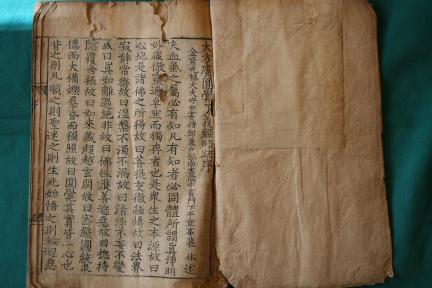 大方廣圓覺了義經略疏序
金紫光祿大夫守中書侍郎兼戶部尚書同中書門下平章事裴 休 述
夫血氣之屬必有知凡有知者必同體所謂真淨明
妙虛徹靈通卓然而獨存者也是衆生之本源故曰
心地是諸佛之所得故曰菩提交徹融攝故曰法界
寂靜常樂故曰涅槃不濁不漏故曰清淨不妄不變
故曰真如離過絕非故曰佛性護善遮惡故曰揔持
隱覆含攝故曰如來藏超越玄閟故曰密嚴國統衆
德而大備爍羣昏而獨照故曰圓覺其實皆一心也
背之則凡順之則聖迷之則生死始悟之則輪迴息